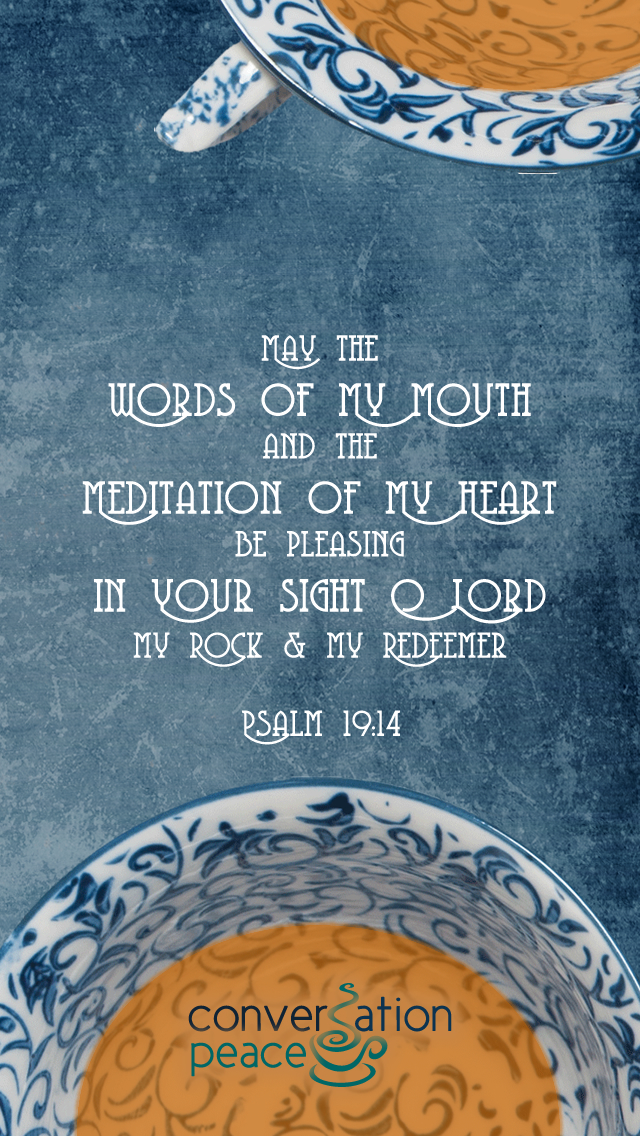 MAY THE
WORDS OF MY MOUTH
AND THE
MEDITATION OF MY HEART
BE PLEASING
IN YOUR SIGHT O LORD
MY ROCK & MY REDEEMER
PSALM 19:14
conversation
peace